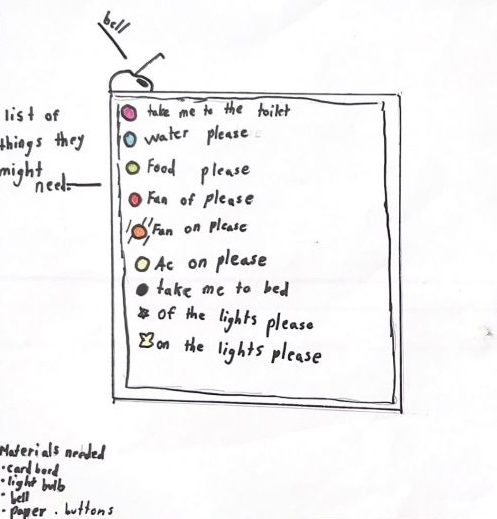 bell
list of
things they
might
need.
take me to the toilet
water please
Food please
Fan of please
Fan on please
Ac on please
take me to bed
of the lights please
on the lights please
Materials needed
• card bord
• light bulb
• bell
• paper . buttons